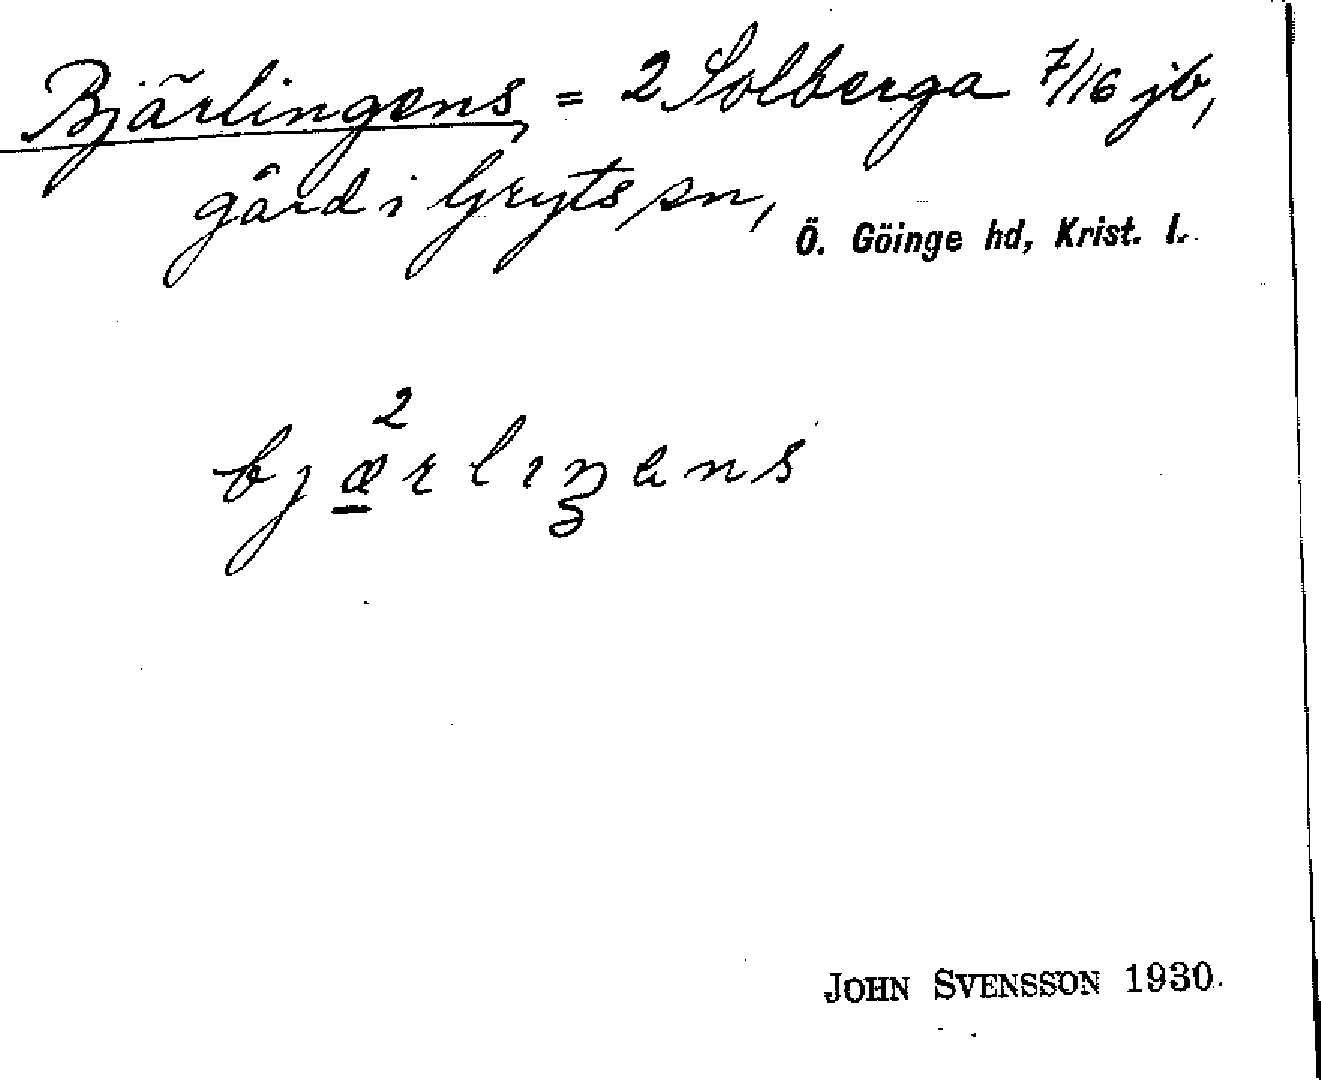 Bjärlingens, = 2 Solberga 7/16 jb,
gård i Gryts sn, Ö. Göinge hd, Krist. l.
2
bjærlıŋens
JOHN SVENSSON 1930.